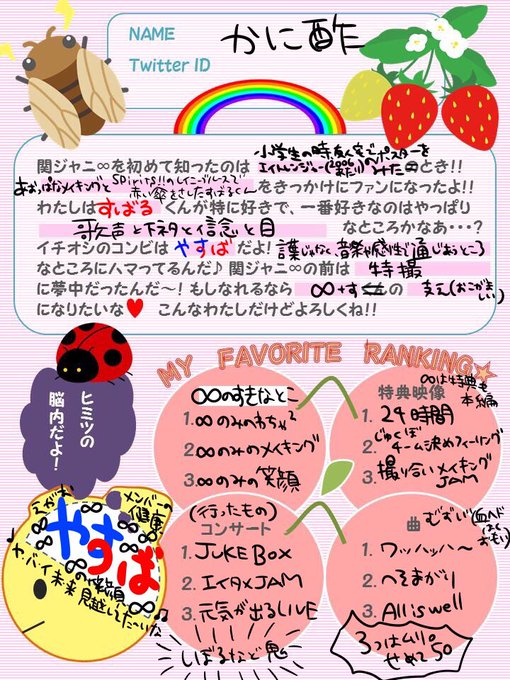 NAME かに酢
Twitter ID
関ジャニ∞を初めて知ったのは 小学生の時友人宅でポスターを
エイトレンジャー(2006 のみた とき!!
あおっぱなメイキングと
赤い傘をさしたすばるくん をきっかけにファンになったよ!!
わたしは すばる くんが特に好きで、一番好きなのはやっぱり
歌声と下ネタと信念と目 なところかなあ・・・?
イチオシのコンビは やすば だよ! 言葉じゃなく、音楽や感性で通じあうところ
なところにハマってるんだ♪ 関ジャニ∞の前は 特撮
に夢中だったんだ~! もしなれるなら ∞+す の 支え(おこがましい)
になりたいな♥ こんなわたしだけどよろしくね!!
MY FAVORITE RANKING☆
ヒミツの
脳内だよ!
∞のすきなとこ
1. ∞のみのわちゃ²
2. ∞のみのメイキング
3. ∞のみの笑顔
∞は特典も
本編
特典映像
1. 24時間
2. じゅくぼ
チーム決めフィーリング
3. 撮り合いメイキング
JAM
えがお
メンバーの
健康
やすば
∞の笑顔
∞
ヤバイ未来見越いもたーいな
(行ったもの)
コンサート
1. JUKE BOX
2. エイタメ JAM
3. 元気が出るLIVE
しばるなど鬼
曲 むずい(血へどはくおもい)
1. ワッハッハー
2. へそまがり
3. All is well
3つはムリ。
せめて50